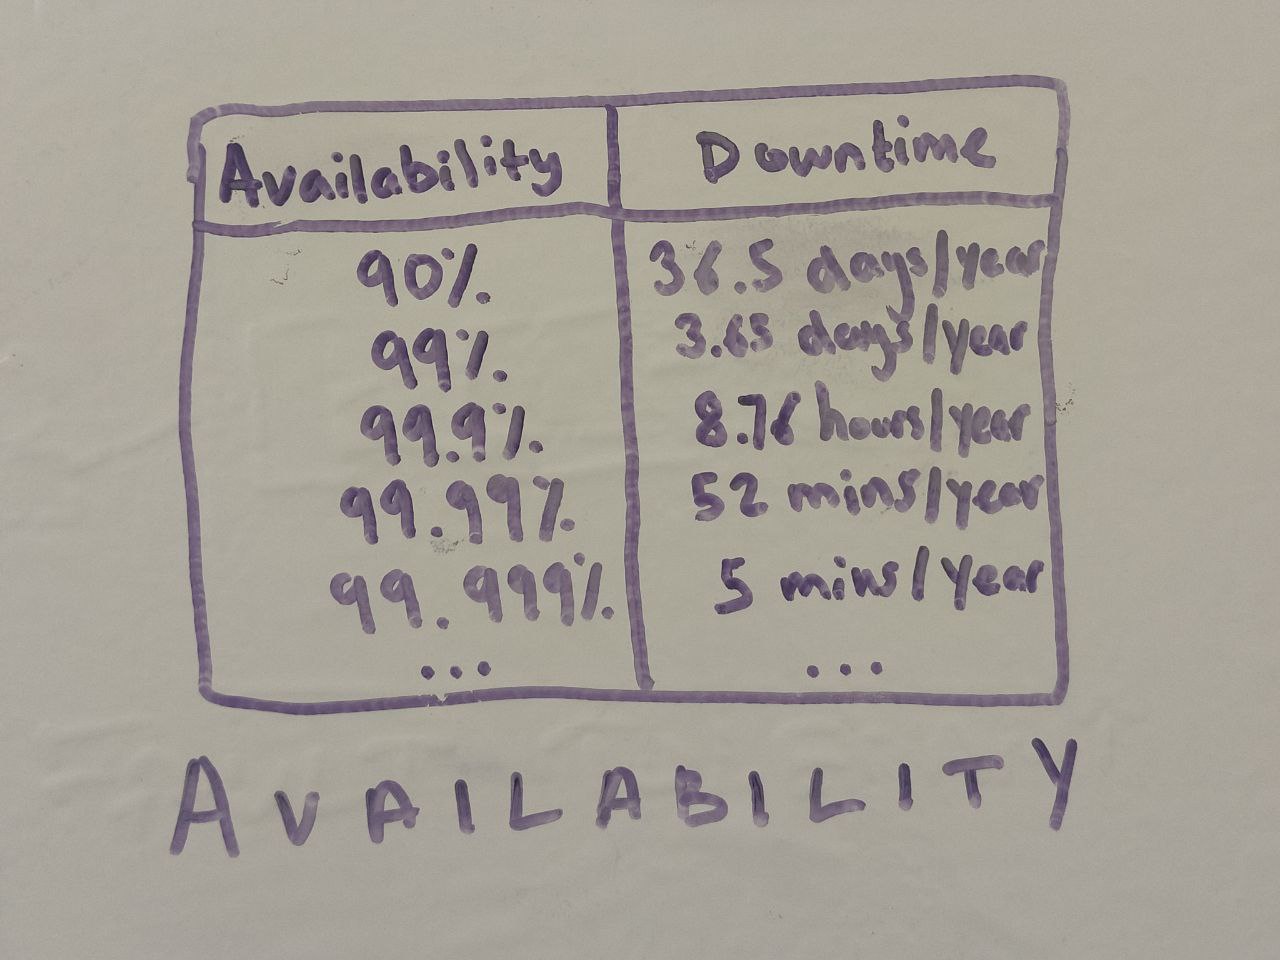 Availability Downtime
90% 36.5 days/year
99% 3.65 days/year
99.9% 8.76 hours/year
99.99% 52 mins/year
99.999% 5 mins/year
... ...
AVAILABILITY